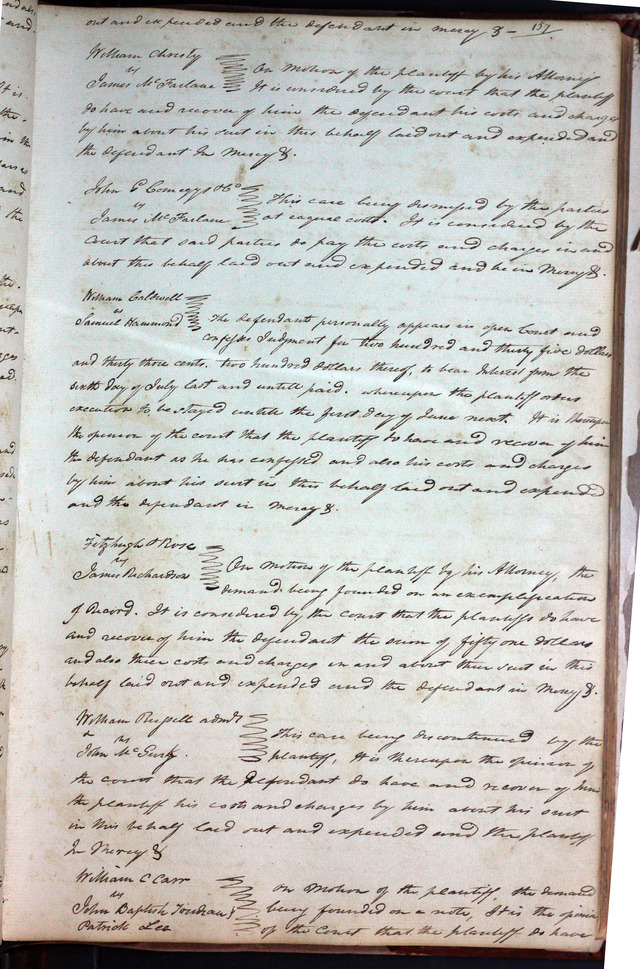 157
out and expended and the defendant in mercy &-
William Christy
vs
James McFarlane
On Motion of the plantiff by his Attorney
It is considered by the court that the plantiff
do have and recover of him the defendant his costs and charges
by him about his suit in this behalf laid out and expended and
the defendant In Mercy &.
John G Comegys & Co
vs
James McFarlane
This case being dismissed by the parties
at equal costs. It is considered by the
Court that said parties do pay the costs and charges in and
about this behalf laid out and expended and be in Mercy &.
William Caldwell
vs
Samuel Hammond
The defendant personally appears in open Court and
confesses Judgment for two hundred and thirty five dollars
and thirty three cents. two hundred dollars thereof, to bear Interest from the
sixth day of July last and untill paid. whereupon the plantiff
execution to be stayed untill the first day of June next. It is thereupon
the opinion of the court that the plantiff do have and recover of him
the defendant as he has confessed and also his costs and charges
by him about his suit in this behalf laid out and expended
and the defendant in mercy &.
Fitzhugh & Rose
vs
James Richardson
On motion of the plantiff by his Attorney, the
demand being founded on an exemplification
of Record. It is considered by the court that the plantiffs do have
and recover of him the defendant the sum of fifty one dollars
and also their costs and charges in and about their suit in this
behalf laid out and expended and the defendant in Mercy &.
William Russell admr
vs
John McGurk.
This case being discontinued by the
plantiff, It is thereupon the opinion of
the court that the Defendant do have and recover of him
the plantiff his costs and charges by him about his suit
in this behalf laid out and expended and the plantiff
In Mercy &
William C Carr
vs
John Baptist Trudeau &
Patrick Lee
On motion of the plantiff the demand
being founded on a note, It is the opinion
of the Court that the plantiff do have